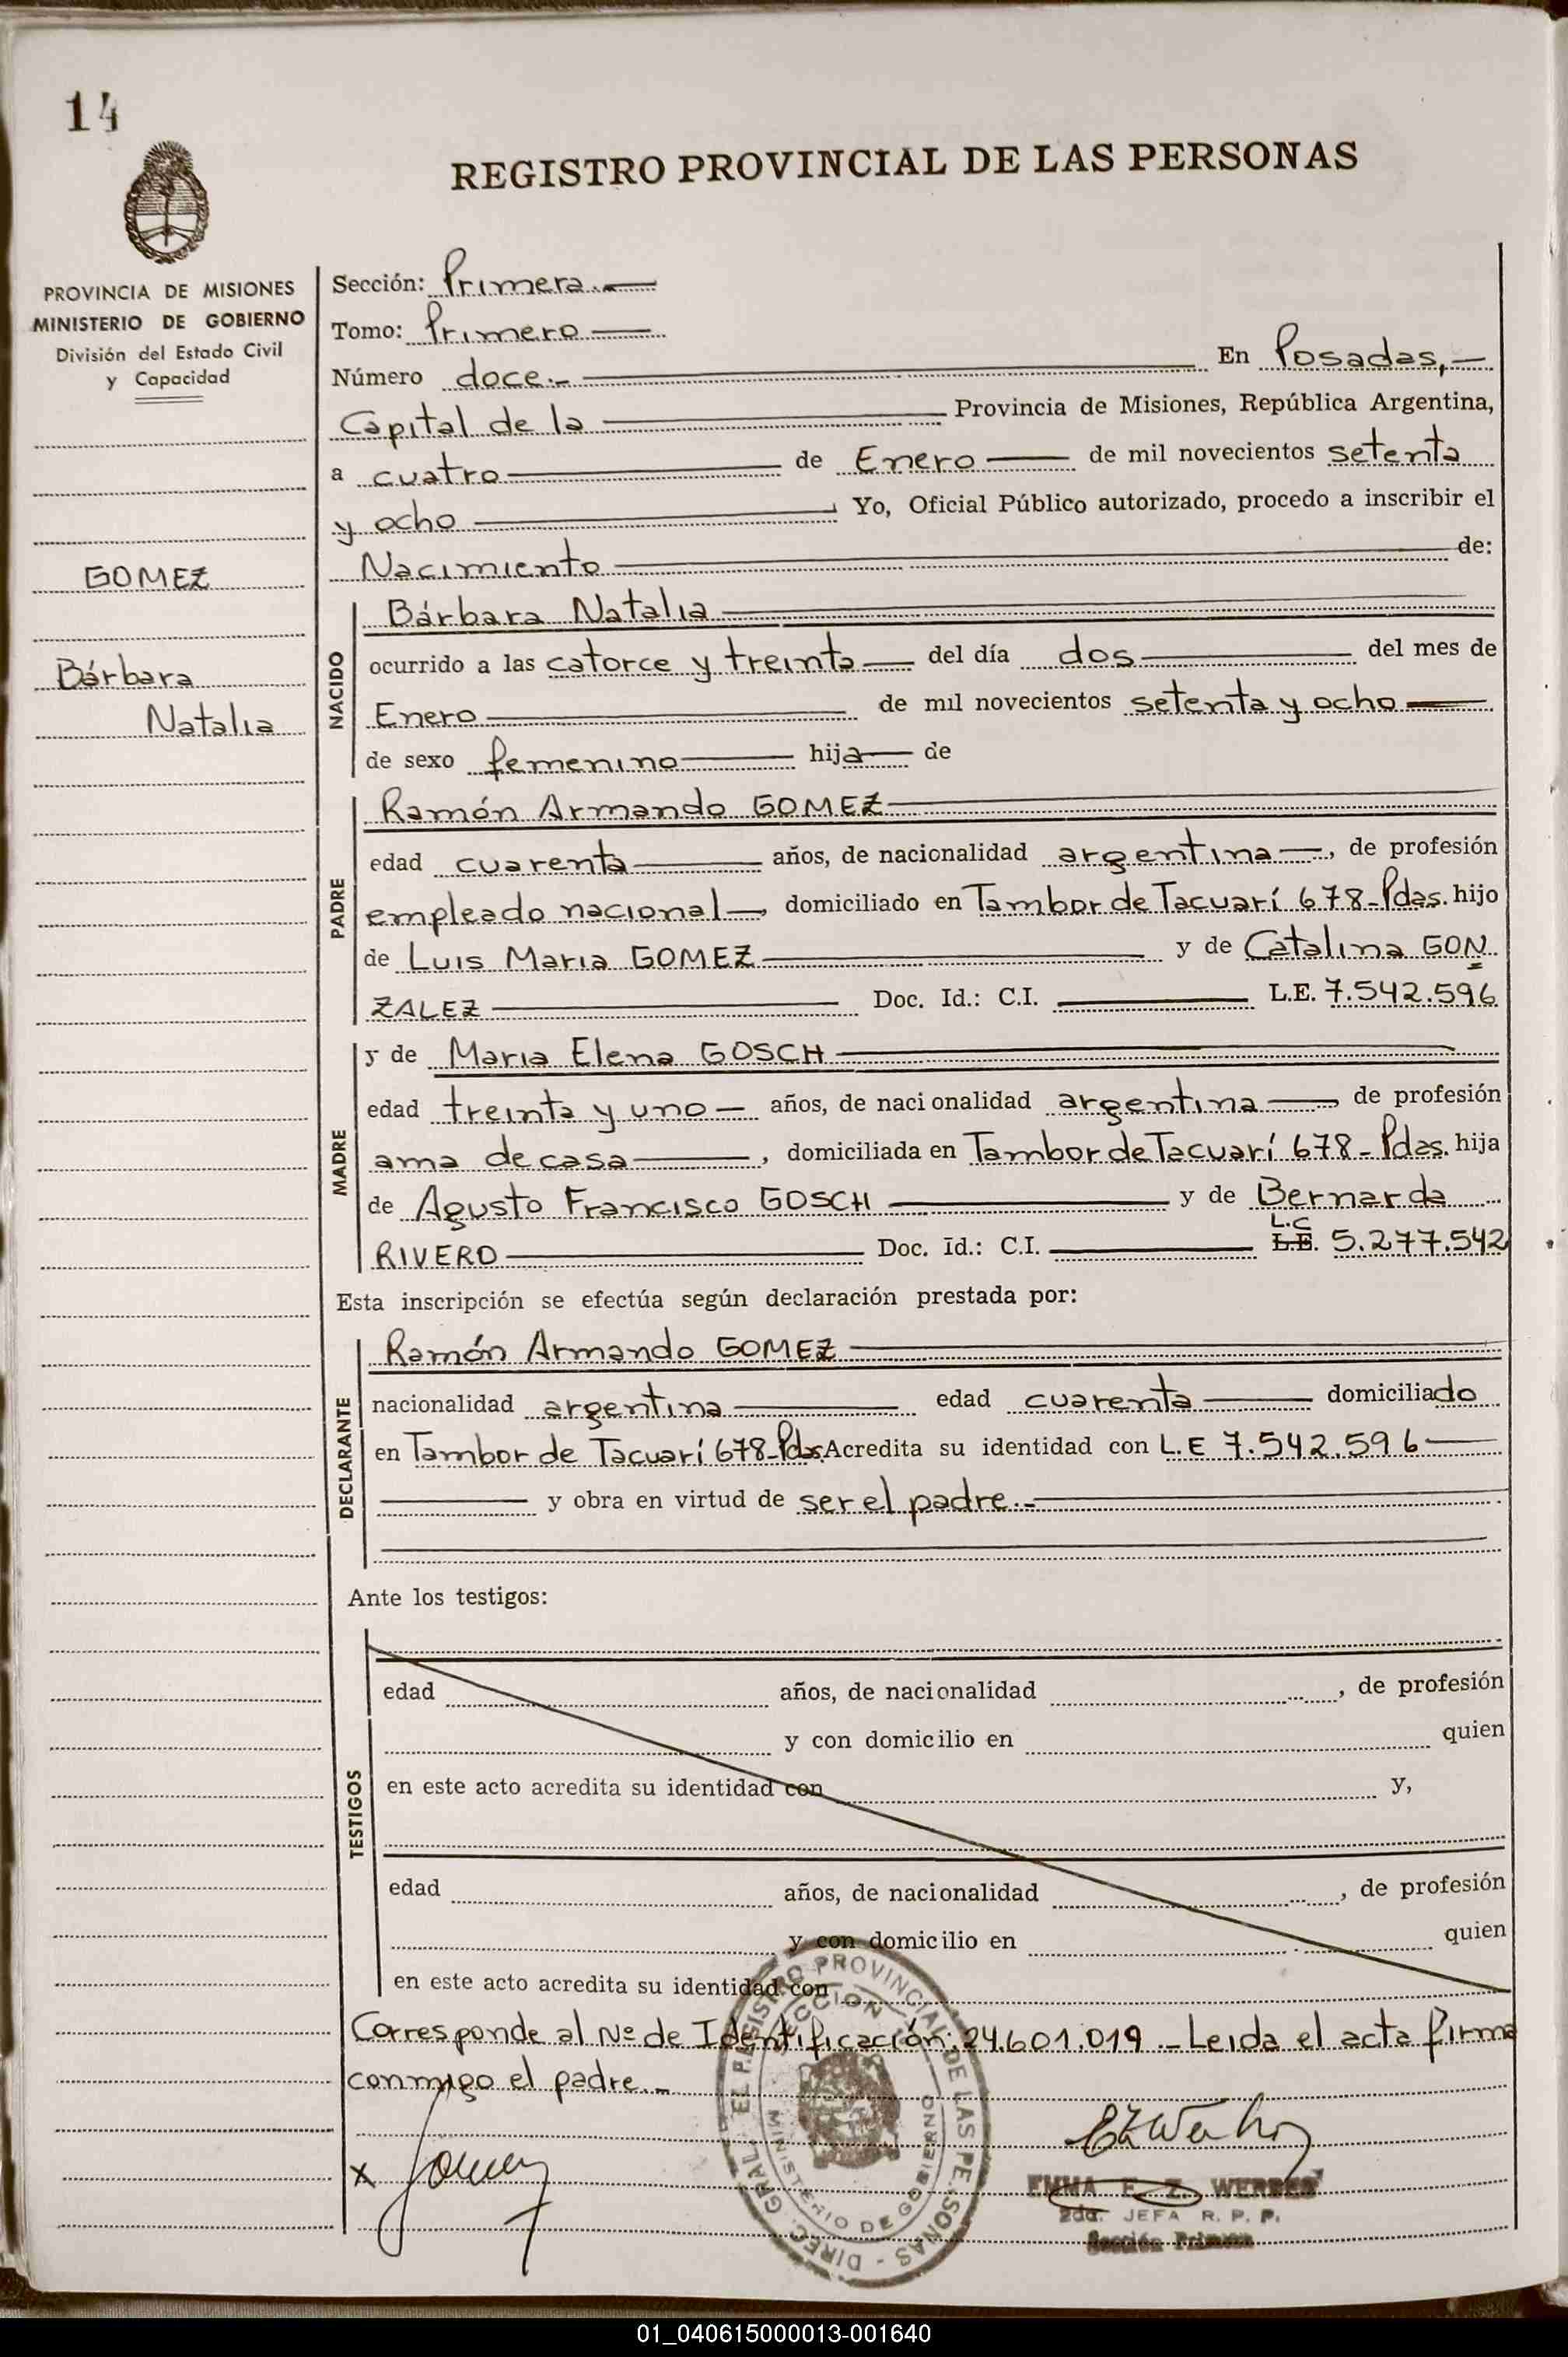 14
REGISTRO PROVINCIAL DE LAS PERSONAS
PROVINCIA DE MISIONES
MINISTERIO DE GOBIERNO
División del Estado Civil
y Capacidad
GOMEZ
Bárbara
Natalia
Sección: Primera.-
Tomo: Primero
Número doce.- En Posadas,
Capital de la Provincia de Misiones, República Argentina,
a cuatro de Enero de mil novecientos setenta
y ocho Yo, Oficial Público autorizado, procedo a inscribir el
Nacimiento de:
NACIDO
Bárbara Natalia
ocurrido a las catorce y treinta del día dos del mes de
Enero de mil novecientos setenta y ocho
de sexo femenino hija de
PADRE
Ramón Armando GOMEZ
edad cuarenta años, de nacionalidad argentina, de profesión
empleado nacional, domiciliado en Tambor de Tacuarí 678-Pdas. hijo
de Luis Maria GOMEZ y de Catalina GON
ZALEZ Doc. Id.: C.I. L.E. 7.542.596
MADRE
y de Maria Elena GOSCH
edad treinta y uno años, de nacionalidad argentina de profesión
ama de casa, domiciliada en Tambor de Tacuarí 678-Pdas. hija
de Agusto Francisco GOSCH y de Bernarda
RIVERO Doc. Id.: C.I. L.E. L.C 5.277.542
Esta inscripción se efectúa según declaración prestada por:
DECLARANTE
Ramón Armando GOMEZ
nacionalidad argentina edad cuarenta domiciliado
en Tambor de Tacuarí 678-Pdas. Acredita su identidad con L.E 7.542.596
y obra en virtud de ser el padre.-
Ante los testigos:
TESTIGOS
edad años, de nacionalidad , de profesión
y con domicilio en quien
en este acto acredita su identidad con y,
edad años, de nacionalidad , de profesión
y con domicilio en quien
en este acto acredita su identidad con
Corresponde al Nº de Identificación: 24.601.019.- Leida el acta firma
conmigo el padre.-
x Gomez
DIREC. GRAL. EL REGISTRO PROVINCIAL DE LAS PERSONAS
SECCION
MINISTERIO DE GOBIERNO
EMMA E. Z. WERBES
2da. JEFA R. P. P.
Sección Primera
01_040615000013-001640